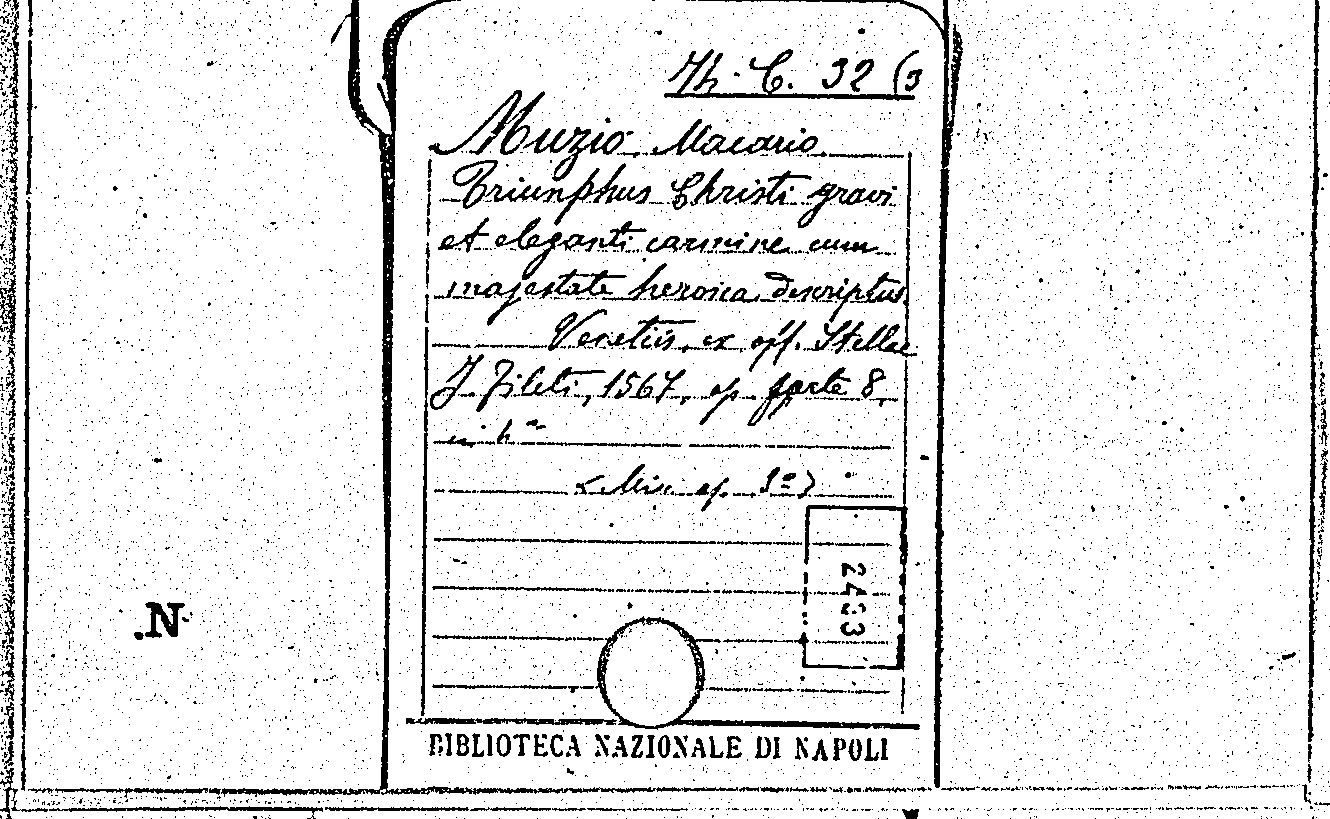 Th. C. 32 (3
Muzio Macario
Triunphus Christi gravi
et eleganti carmine cum
majestate heroica descriptus
Venetiis, ex off. Stellae
J. Zileti, 1567, op. parte 8,
in 4º
(Mis. op. 3º)
2433
.N
BIBLIOTECA NAZIONALE DI NAPOLI